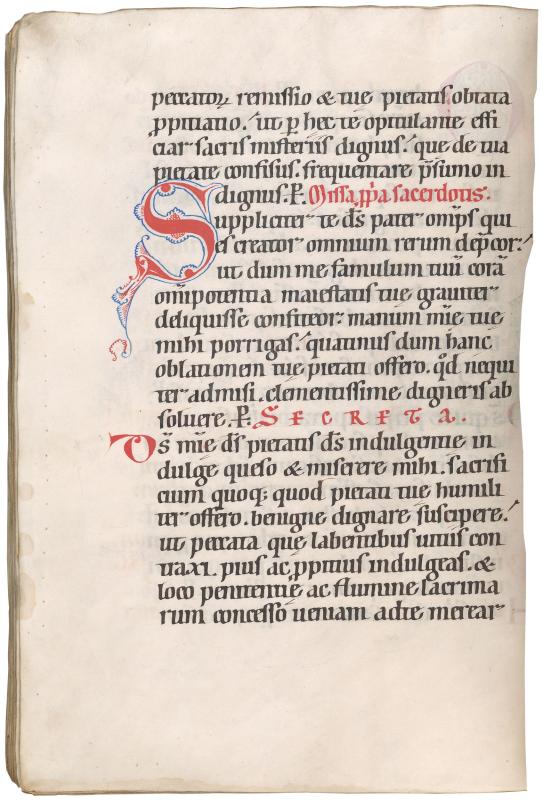 peccatoꝝ remissio & tue pietatis obtata
ꝓpitiatio. ut ꝑ hec te opitulante effi
ciar sacris misteriis dignus. que de tua
pietate confisus. frequentare p̄sumo in
dignus. P. Missa ꝓp̄a sacerdotis.
Suppliciter te d̄s pater om̄ps qui
es creator omnium rerum dep̄cor.
ut dum me famulum tuū corā
om̄ipotentia maiestatis tue graviter
deliquisse confiteor manum mīe tue
mihi porrigas. quatinus dum hanc
oblationem tue pietati offero. qd̄ nequi
ter admisi. clementissime digneris ab
soluere. P. SECRETA.
Ds̄ mīe d̄s pietatis d̄s indulgentie in
dulge queso & miserere mihi. sacrifi
cium quoq; quod pietati tue humili
ter offero. benigne dignare suscipere.
ut peccata que labentibus uitiis con
traxi. pius ac ꝓpitius indulgeas. &
loco penitentie ac flumine lacrima
rum concesso ueniam a te merear